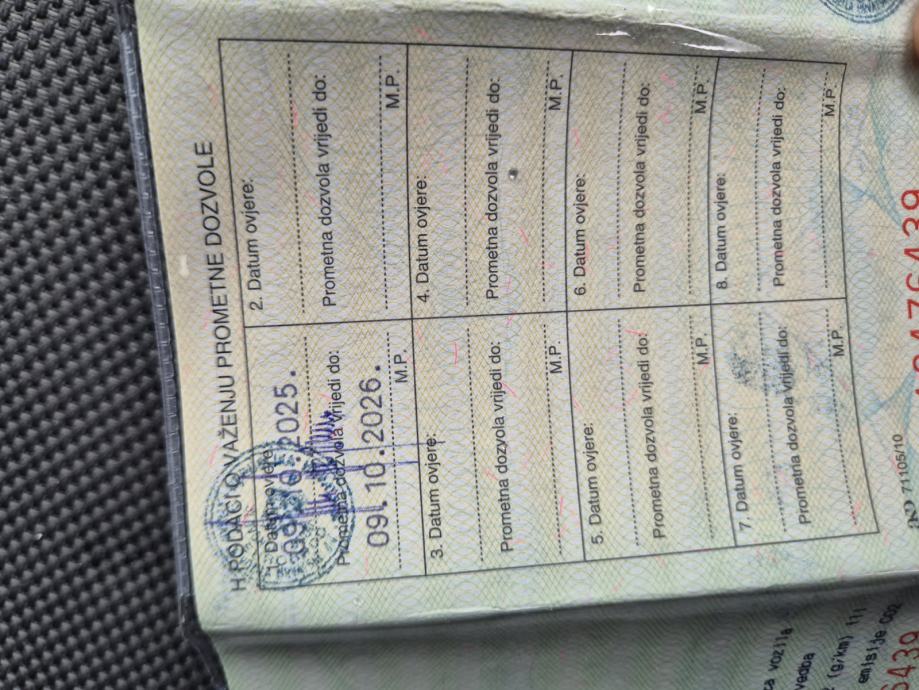 H PODACI O VAŽENJU PROMETNE DOZVOLE
1. Datum ovjere:
2025.
Prometna dozvola vrijedi do:
09. 10. 2026.
M.P.
2. Datum ovjere:
Prometna dozvola vrijedi do:
M.P.
3. Datum ovjere:
Prometna dozvola vrijedi do:
M.P.
4. Datum ovjere:
Prometna dozvola vrijedi do:
M.P.
5. Datum ovjere:
Prometna dozvola vrijedi do:
M.P.
6. Datum ovjere:
Prometna dozvola vrijedi do:
M.P.
7. Datum ovjere:
Prometna dozvola vrijedi do:
M.P.
8. Datum ovjere:
Prometna dozvola vrijedi do:
M.P.
71105/10
vozila
(g/km)
emisije CO2
6439